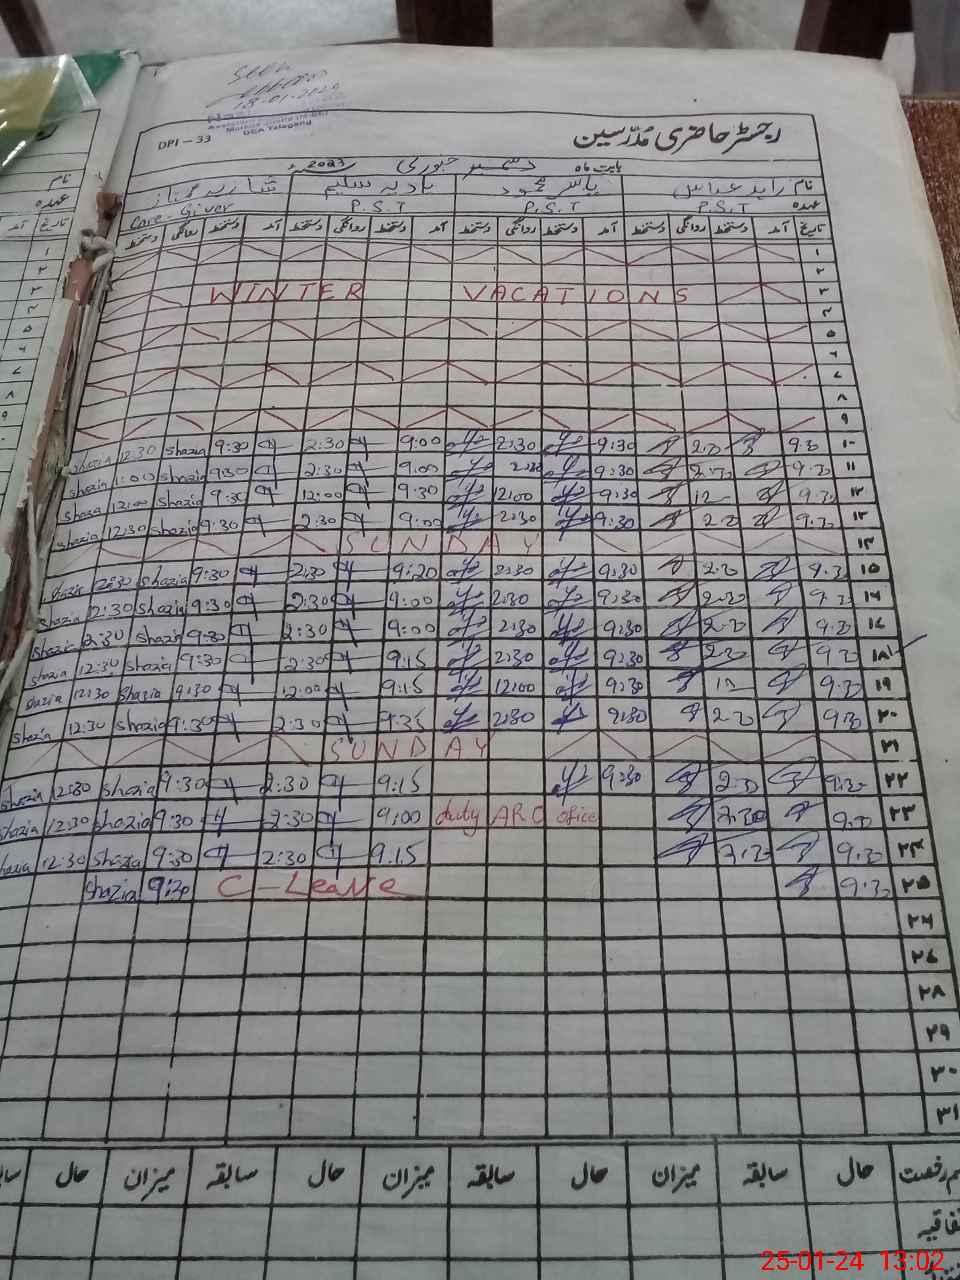 Seen
18-01-2024
DEA Talagang
DPI - 33
رجسٹر حاضری مُدرّسین
بابت ماہ دسمبر جنوری 2023ء
نام زاہد عباس یاسر محمود نادیہ سلیم شازیہ
عہدہ P.S.T P.S.T P.S.T Care-Giver
تاریخ آمد دستخط روانگی دستخط آمد دستخط روانگی دستخط آمد دستخط روانگی دستخط آمد دستخط روانگی دستخط
۱
۲
۳ WINTER VACATIONS
۴
۵
۶
۷
۸
۹
shazia 12:30 shazia 9:30 2:30 9:00 2:30 9:30 2:30 9:30 ۱۰
shazia 1:00 shazia 9:30 2:30 9:00 2:30 9:30 2:30 9:30 ۱۱
shazia 12:00 shazia 9:30 12:00 9:30 12:00 9:30 12 9:30 ۱۲
shazia 12:30 shazia 9:30 2:30 9:00 2:30 9:30 2:30 9:30 ۱۳
SUNDAY ۱۴
shazia 12:30 shazia 9:30 2:30 9:20 2:30 9:30 2:30 9:30 ۱۵
shazia 12:30 shazia 9:30 2:30 9:00 2:30 9:30 2:30 9:30 ۱۶
shazia 12:30 shazia 9:30 2:30 9:00 2:30 9:30 2:30 9:30 ۱۷
shazia 12:30 shazia 9:30 2:30 9:15 2:30 9:30 2:30 9:30 ۱۸
shazia 12:30 shazia 9:30 12:00 9:15 12:00 9:30 12 9:30 ۱۹
shazia 12:30 shazia 9:30 2:30 9:35 2:30 9:30 2:30 9:30 ۲۰
SUNDAY ۲۱
shazia 12:30 shazia 9:30 2:30 9:15 9:30 2:30 9:30 ۲۲
shazia 12:30 shazia 9:30 2:30 9:00 duty ARC office 2:30 9:30 ۲۳
shazia 12:30 shazia 9:30 2:30 9.15 2:30 9:30 ۲۴
shazia 9:30 C-Leave 9:30 ۲۵
۲۶
۲۷
۲۸
۲۹
۳۰
۳۱
حال سابقہ میزان حال سابقہ میزان حال سابقہ میزان حال
25-01-24 13:02